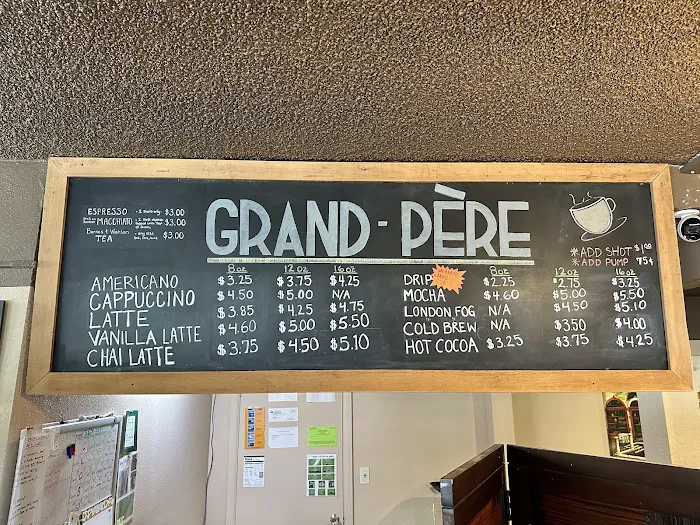 GRAND-PÈRE
ESPRESSO $3.00
MACCHIATO $3.00
TEA $3.00
*ADD SHOT $1.00
*ADD PUMP 75¢
8oz 12oz 16oz
AMERICANO $3.25 $3.75 $4.25
CAPPUCCINO $4.50 $5.00 N/A
LATTE $3.85 $4.25 $4.75
VANILLA LATTE $4.60 $5.00 $5.50
CHAI LATTE $3.75 $4.50 $5.10
8oz 12oz 16oz
DRIP $2.25 $2.75 $3.25
MOCHA $4.60 $5.00 $5.50
LONDON FOG N/A $4.50 $5.10
COLD BREW N/A $3.50 $4.00
HOT COCOA $3.25 $3.75 $4.25